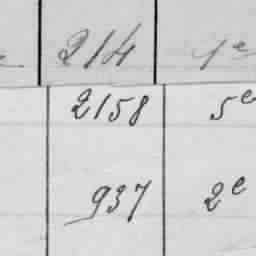 214 1e
2158 5e
937 2e